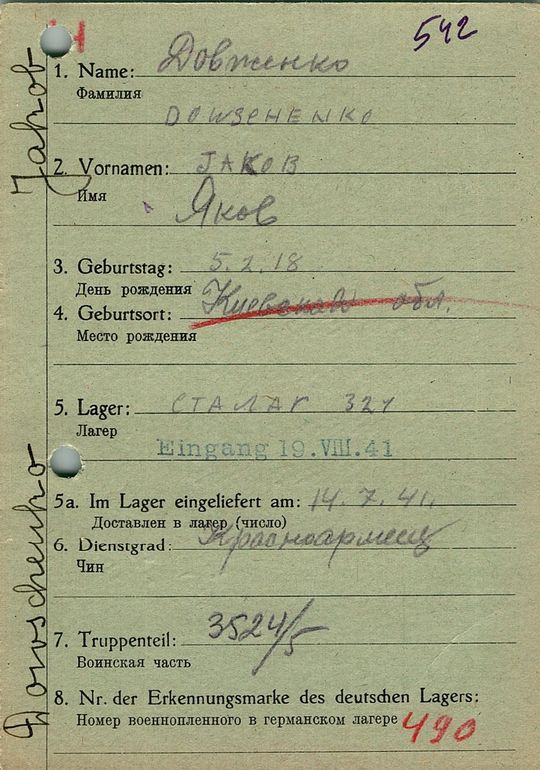 542
1. Name: Довженко
Фамилия
DOWSCHENKO
2. Vornamen: JAKOB
Имя
Яков
3. Geburtstag: 5.2.18
День рождения
4. Geburtsort: Киевская обл.
Место рождения
5. Lager: СТАЛАГ 321
Лагер
Eingang 19.VIII.41
5a. Im Lager eingeliefert am: 14.7.41.
Доставлен в лагер (число)
6. Dienstgrad: Красноармеец
Чин
7. Truppenteil: 3524/5
Воинская часть
8. Nr. der Erkennungsmarke des deutschen Lagers:
Номер военнопленного в германском лагере 490
Dowschenko Jakob